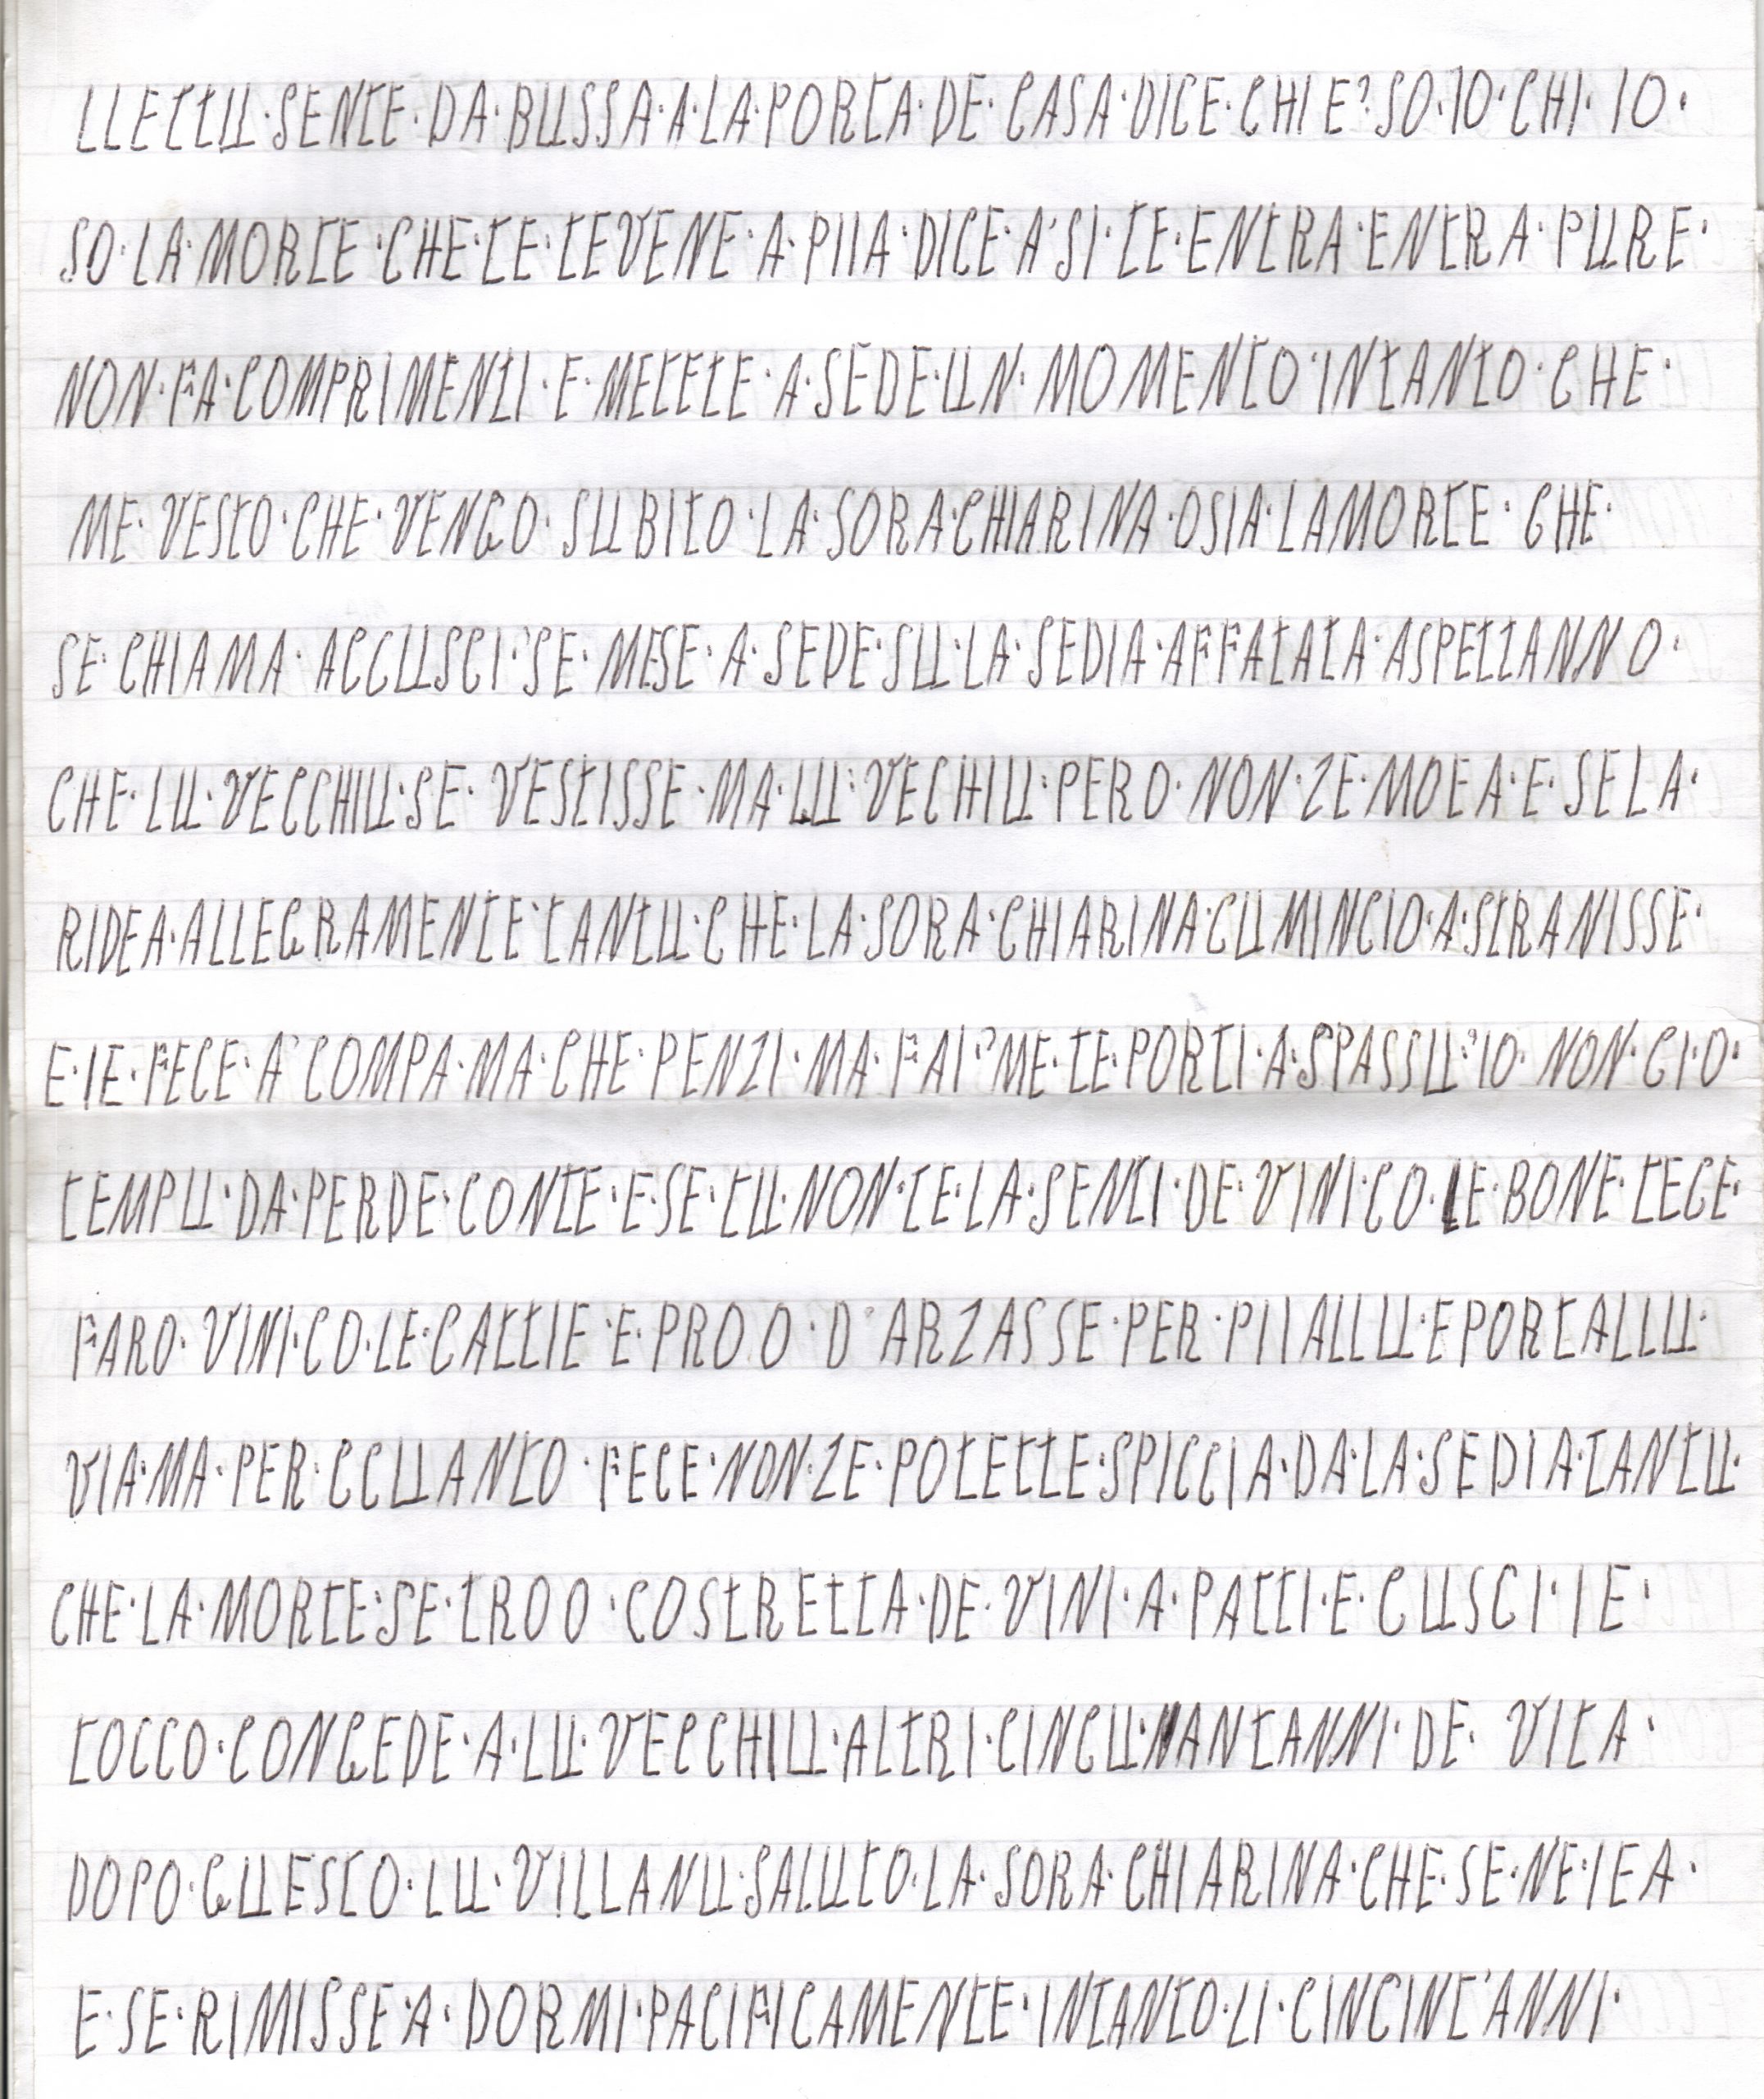 LLETTU·SENTE·DA·BUSSA·A·LA·PORTA·DE·CASA·DICE·CHI E?SO·IO·CHI·IO·
SO·LA·MORTE·CHE·TE·TEVENE·A·PIIA·DICE·A'SI·TE·ENTRA·ENTRA·PURE·
NON·FA·COMPRIMENTI·E·METETE·A·SEDE·UN·MOMENTO·INTANTO·CHE·
ME·VESTO·CHE·VENGO·SUBITO·LA·SORA·CHIARINA·OSIA·LAMORTE·CHE·
SE·CHIAMA·ACCUSCI·SE·MESE·A·SEDE·SU·LA·SEDIA·AFFATATA·ASPETTANNO·
CHE·LU·VECCHIU·SE·VESTISSE·MA·LU·VECHIU·PERO·NON·ZE·MOEA·E·SELA·
RIDEA·ALLEGRAMENTE·TANTU·CHE·LA·SORA·CHIARINA·CUMINCIO·A·STRANISSE·
E·IE·FECE·A'COMPA·MA·CHE·PENZI·MA·FAI?ME·TE·PORTI·A·SPASSU?IO·NON·CI·O·
TEMPU·DA·PERDE·CONTE·E·SE·TU·NON·TE·LA·SENTI·DE·VINI·CO·LE·BONE·TECE·
FARO·VINI·CO·LE·CATTIE·E·PROO·D'ARZASSE·PER·PIIALLU·EPORTALLU·
VIA·MA·PER·CCUANTO·FECE·NON·ZE·POTETTE·SPICCIA·DA·LA·SEDIA·TANTU·
CHE·LA·MORTE·SE·TROO·COSTRETTA·DE·VINI·A·PATTI·E·CUSCI·IE·
TOCCO·CONGEDE·A·LU·VECCHIU·ALTRI·CINCU·NANTANNI·DE·VITA·
DOPO·QUESTO·LU·VILLANU·SALUTO·LA·SORA·CHIARINA·CHE·SE·NE·IEA·
E·SE·RIMISSE·A·DORMI·PACIFICAMENTE·INTANTO·LI·CINCINT'ANNI·